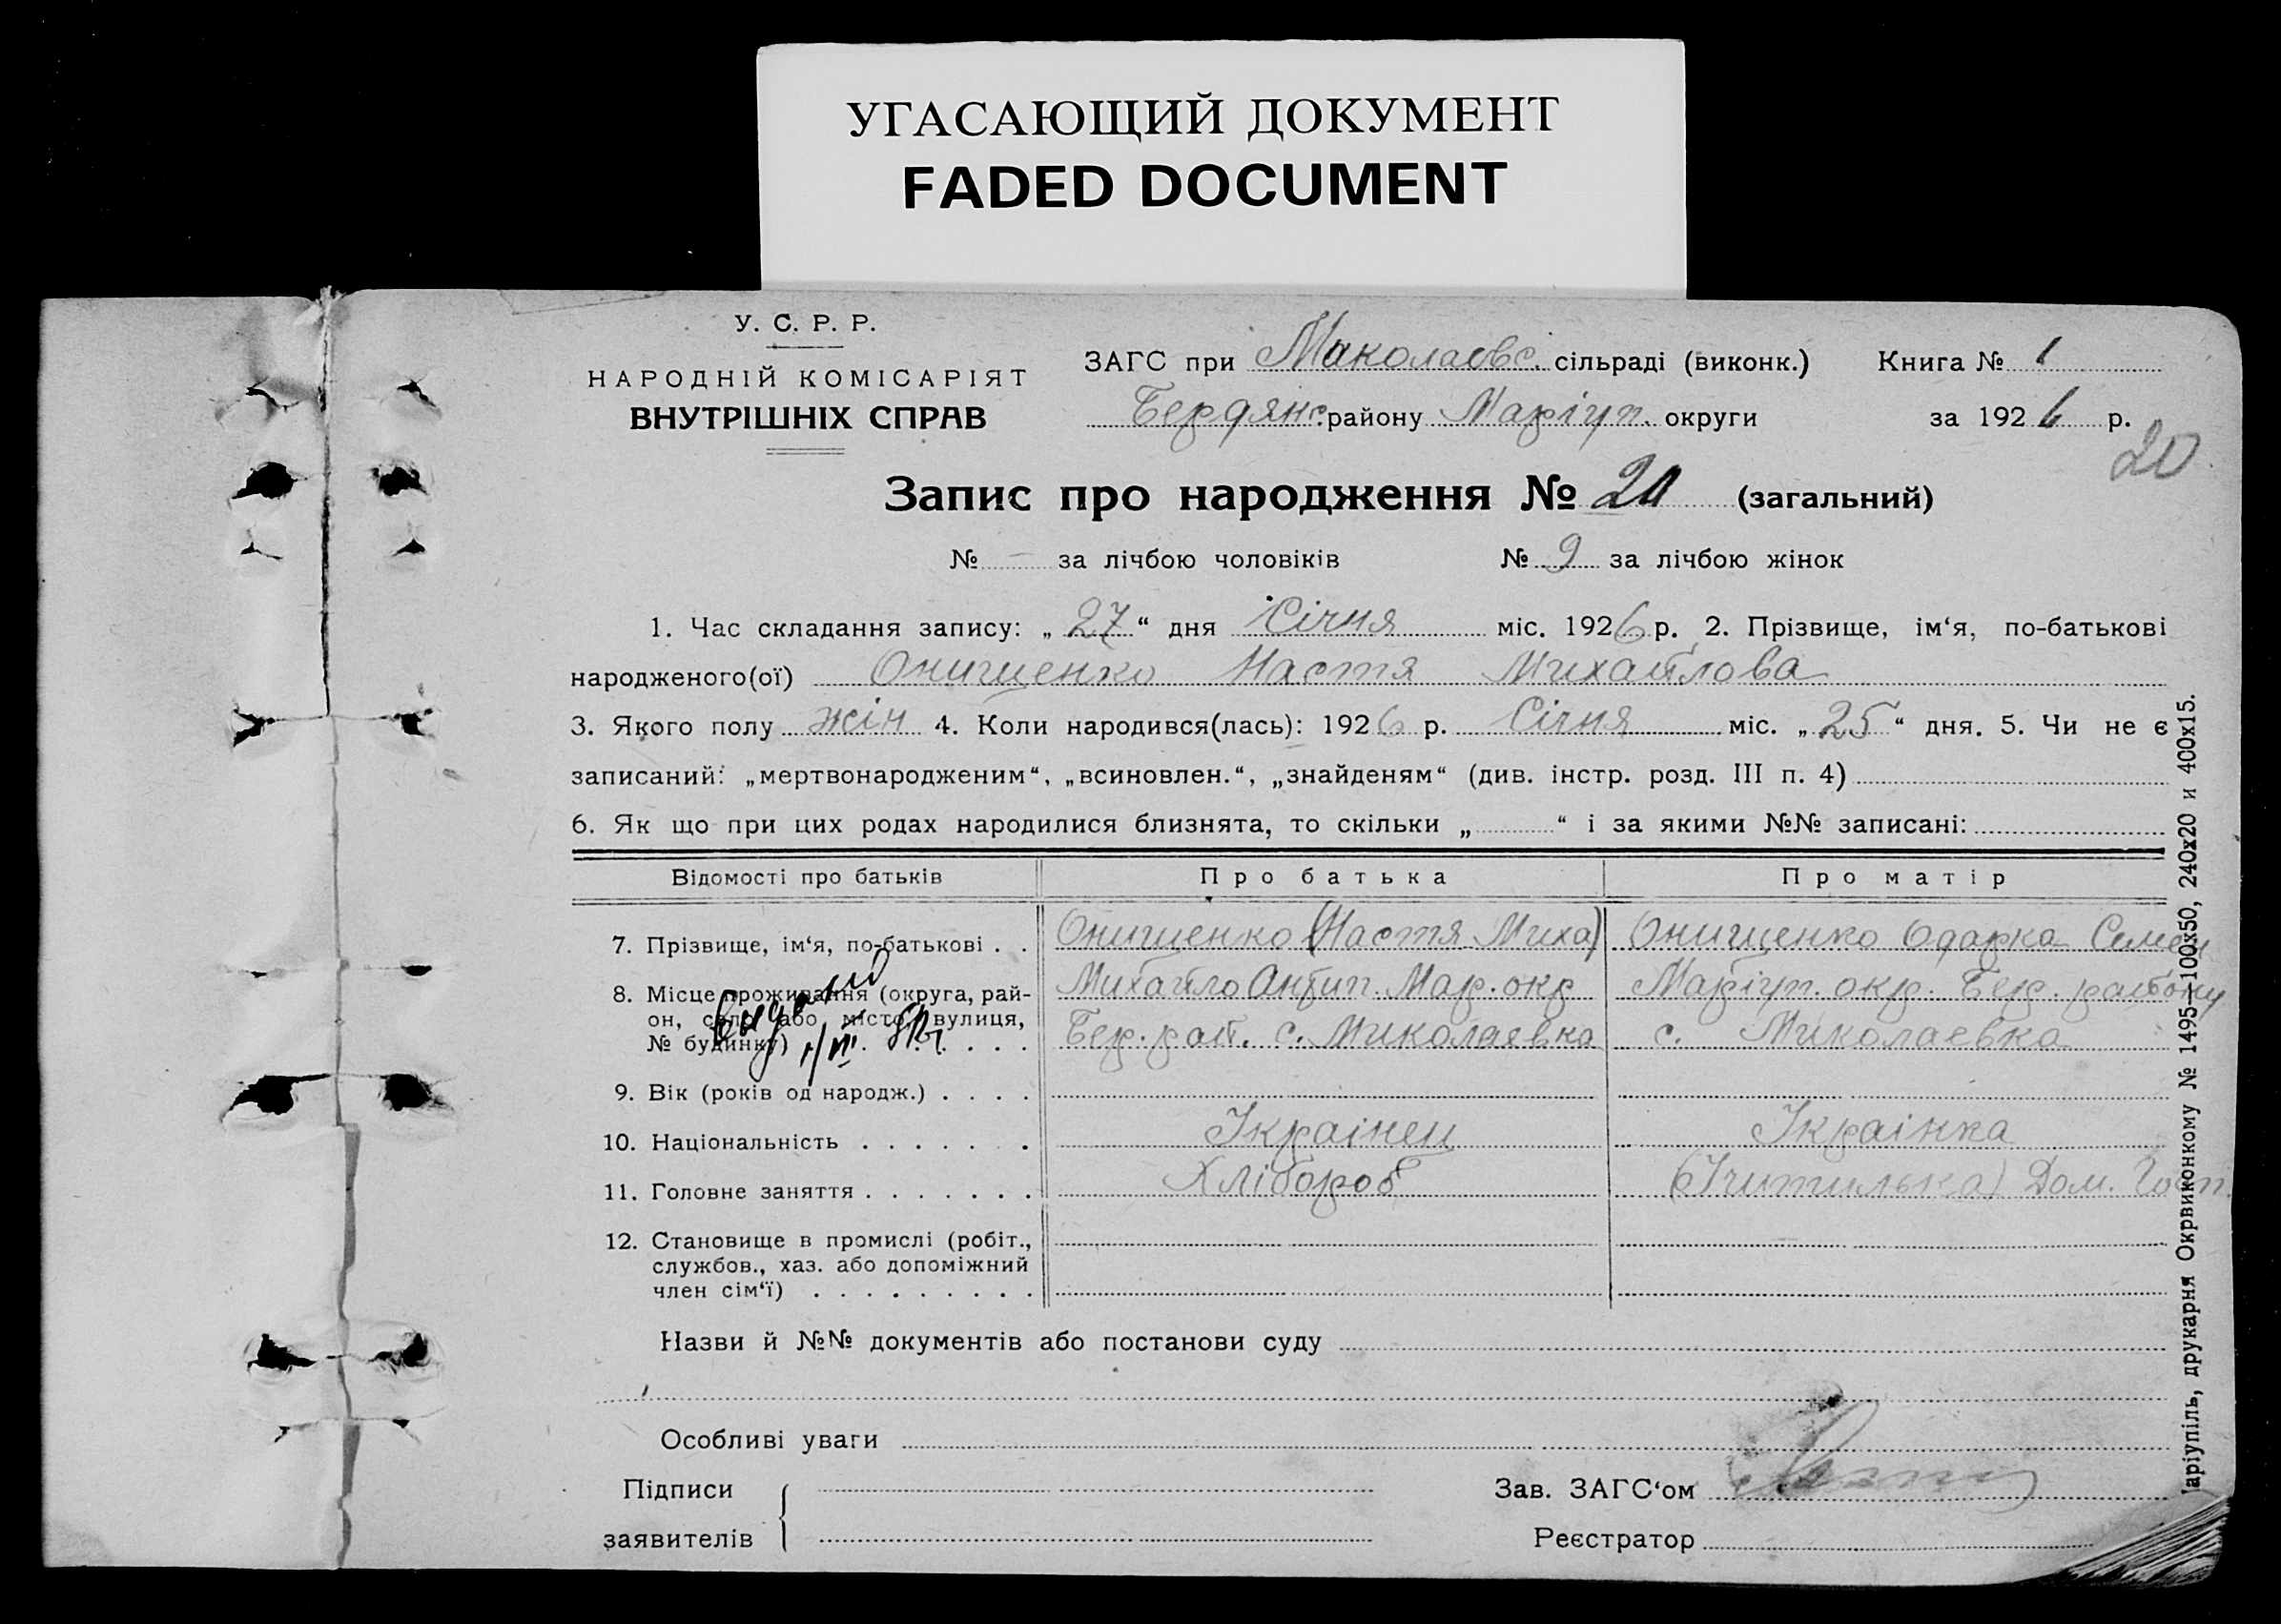 УГАСАЮЩИЙ ДОКУМЕНТ
FADED DOCUMENT
У. С. Р. Р.
НАРОДНІЙ КОМІСАРІЯТ
ВНУТРІШНІХ СПРАВ
ЗАГС при Миколаевс. сільраді (виконк.) Книга № 1
Бердянс. району Маріуп. округи за 1926 р.
20
Запис про народження № 20 (загальний)
№ — за лічбою чоловіків № 9 за лічбою жінок
1. Час складання запису: „27“ дня Січня міс. 1926 р. 2. Прізвище, ім‘я, по-батькові
народженого(ої) Онищенко Настя Михайлова
3. Якого полу жін 4. Коли народився(лась): 1926 р. Січня міс. „25“ дня. 5. Чи не є
записаний: „мертвонародженим“, „всиновлен.“, „знайденям“ (див. інстр. розд. III п. 4)
6. Як що при цих родах народилися близнята, то скільки „ “ і за якими №№ записані:
Відомості про батьків Про батька Про матір
7. Прізвище, ім‘я, по-батькові . . Онищенко (Настя Миха) Онищенко Одарка Семен
8. Місце проживання (округа, рай- Михайло Антип. Мар. окр Маріуп. окр. Бер. району
он, село або місто, вулиця,
№ будинку) . . . . Бер. рай. с. Миколаевка с. Миколаевка
видано
9. Вік (років од народж.) . . . .
10. Національність . . . . . . . Украінец Украінка
11. Головне заняття . . . . . . . Хлібороб (Учителька) Дом. Госп.
12. Становище в промислі (робіт.,
службов., хаз. або допоміжний
член сім‘ї) . . . . . . . . .
Назви й №№ документів або постанови суду
Особливі уваги
Підписи
заявителів
Зав. ЗАГС‘ом
Реєстратор
аріупіль, друкарня Окрвиконкому № 1495—100х50, 240х20 и 400х15.